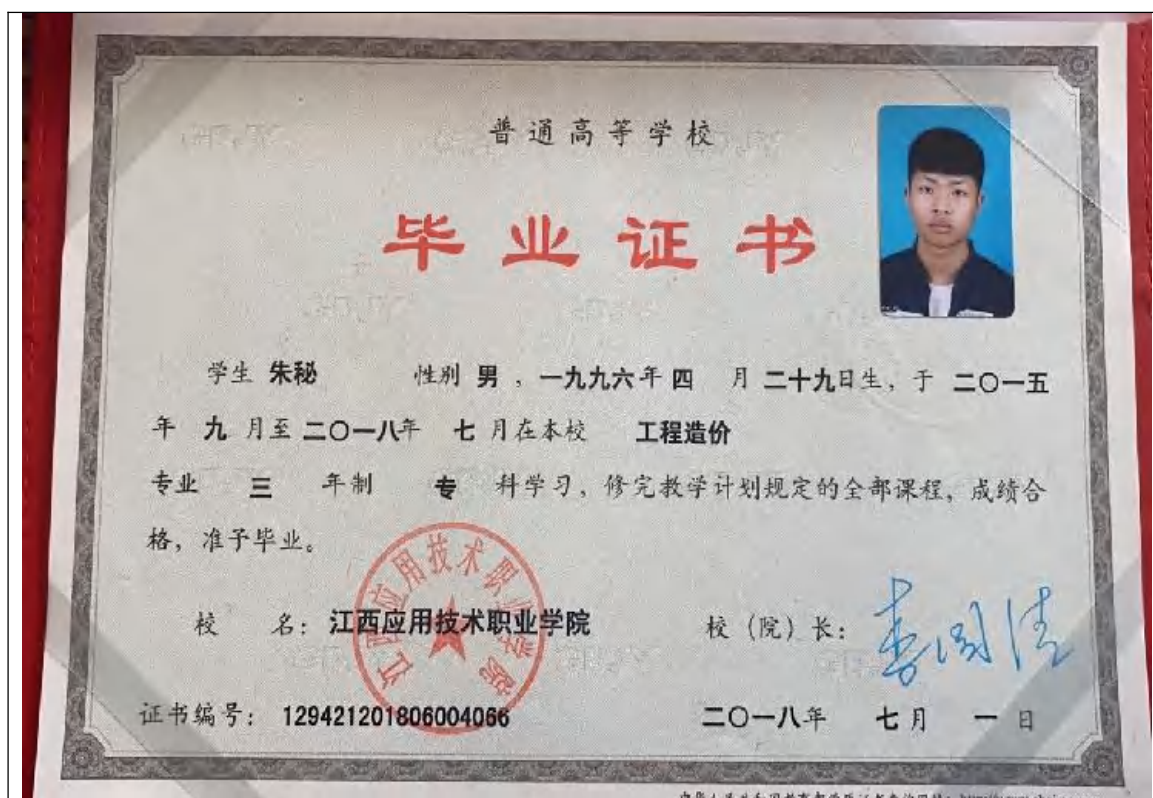 普通高等学校
毕业证书
学生 朱秘 性别 男 ，一九九六年 四 月 二十九日生，于 二〇一五
年 九 月至 二〇一八年 七 月在本校 工程造价
专业 三 年制 专 科学习，修完教学计划规定的全部课程，成绩合
格，准予毕业。
江西应用技术职业学院
校 名：江西应用技术职业学院 校（院）长：
证书编号：129421201806004066 二〇一八年 七月 一 日